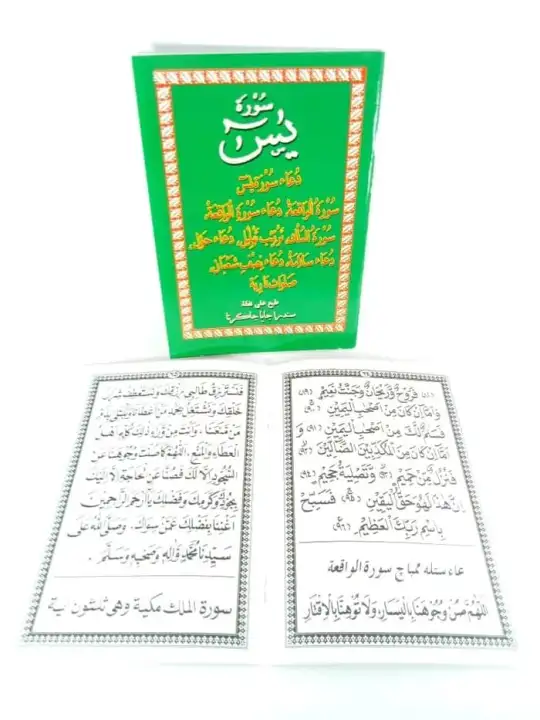 سُوْرَة
يٰسٓ
دُعَاء سُوْرَة يٰسٓ
سُوْرَةُ الْوَاقِعَةْ، دُعَاء سُوْرَةْ الْوَاقِعَةْ
سُوْرَةْ الْمُلْكِ
دُعَاء سَلَامَةْ، دُعَاء نِصْفِ شَعْبَانْ،
صَلَوَاتْ نَارِيَة
طبع على نفقة
فَرَوْحٌ وَّرَيْحَانٌ وَّجَنَّتُ نَعِيْمٍ (٨٩)
وَاَمَّآ اِنْ كَانَ مِنْ اَصْحٰبِ الْيَمِيْنِ (٩٠)
فَسَلٰمٌ لَّكَ مِنْ اَصْحٰبِ الْيَمِيْنِ (٩١) وَ
اَمَّآ اِنْ كَانَ مِنَ الْمُكَذِّبِيْنَ الضَّآلِّيْنَ (٩٢)
فَنُزُلٌ مِّنْ حَمِيْمٍ (٩٣) وَّتَصْلِيَةُ جَحِيْمٍ (٩٤)
اِنَّ هٰذَا لَهُوَ حَقُّ الْيَقِيْنِ (٩٥) فَسَبِّحْ
بِاسْمِ رَبِّكَ الْعَظِيْمِ (٩٦)
دعاء ستله ممباچ سورة الواقعة
اَللّٰهُمَّ صُنْ وُجُوْهَنَا بِالْيَسَارِ، وَلَا تُوْهِنَّا بِالْاِقْتَارِ
فَنَسْتَرْزِقَ طَالِبِيْ رِزْقِكَ وَنَسْتَعْطِفَ شِرَارَ
خَلْقِكَ وَنَشْتَغِلَ بِحَمْدِ مَنْ اَعْطَانَا وَنُبْتَلٰى بِذَمِّ
مَنْ مَنَعَنَا، وَاَنْتَ مِنْ وَرَاءِ ذٰلِكَ كُلِّهِ اَهْلُ
الْعَطَاءِ وَالْمَنْعِ. اَللّٰهُمَّ كَمَا صُنْتَ وُجُوْهَنَا عَنِ
السُّجُوْدِ اِلَّا لَكَ فَصُنَّا عَنِ الْحَاجَةِ اِلَّا اِلَيْكَ
بِجُوْدِكَ وَكَرَمِكَ وَفَضْلِكَ يَا اَرْحَمَ الرَّاحِمِيْنَ
اَغْنِنَا بِفَضْلِكَ عَمَّنْ سِوَاكَ. وَصَلَّى اللّٰهُ عَلٰى
سَيِّدِنَا مُحَمَّدٍ وَّاٰلِهِ وَصَحْبِهِ وَسَلَّمَ.
سورة الملك مكية وهي ثلثون اية